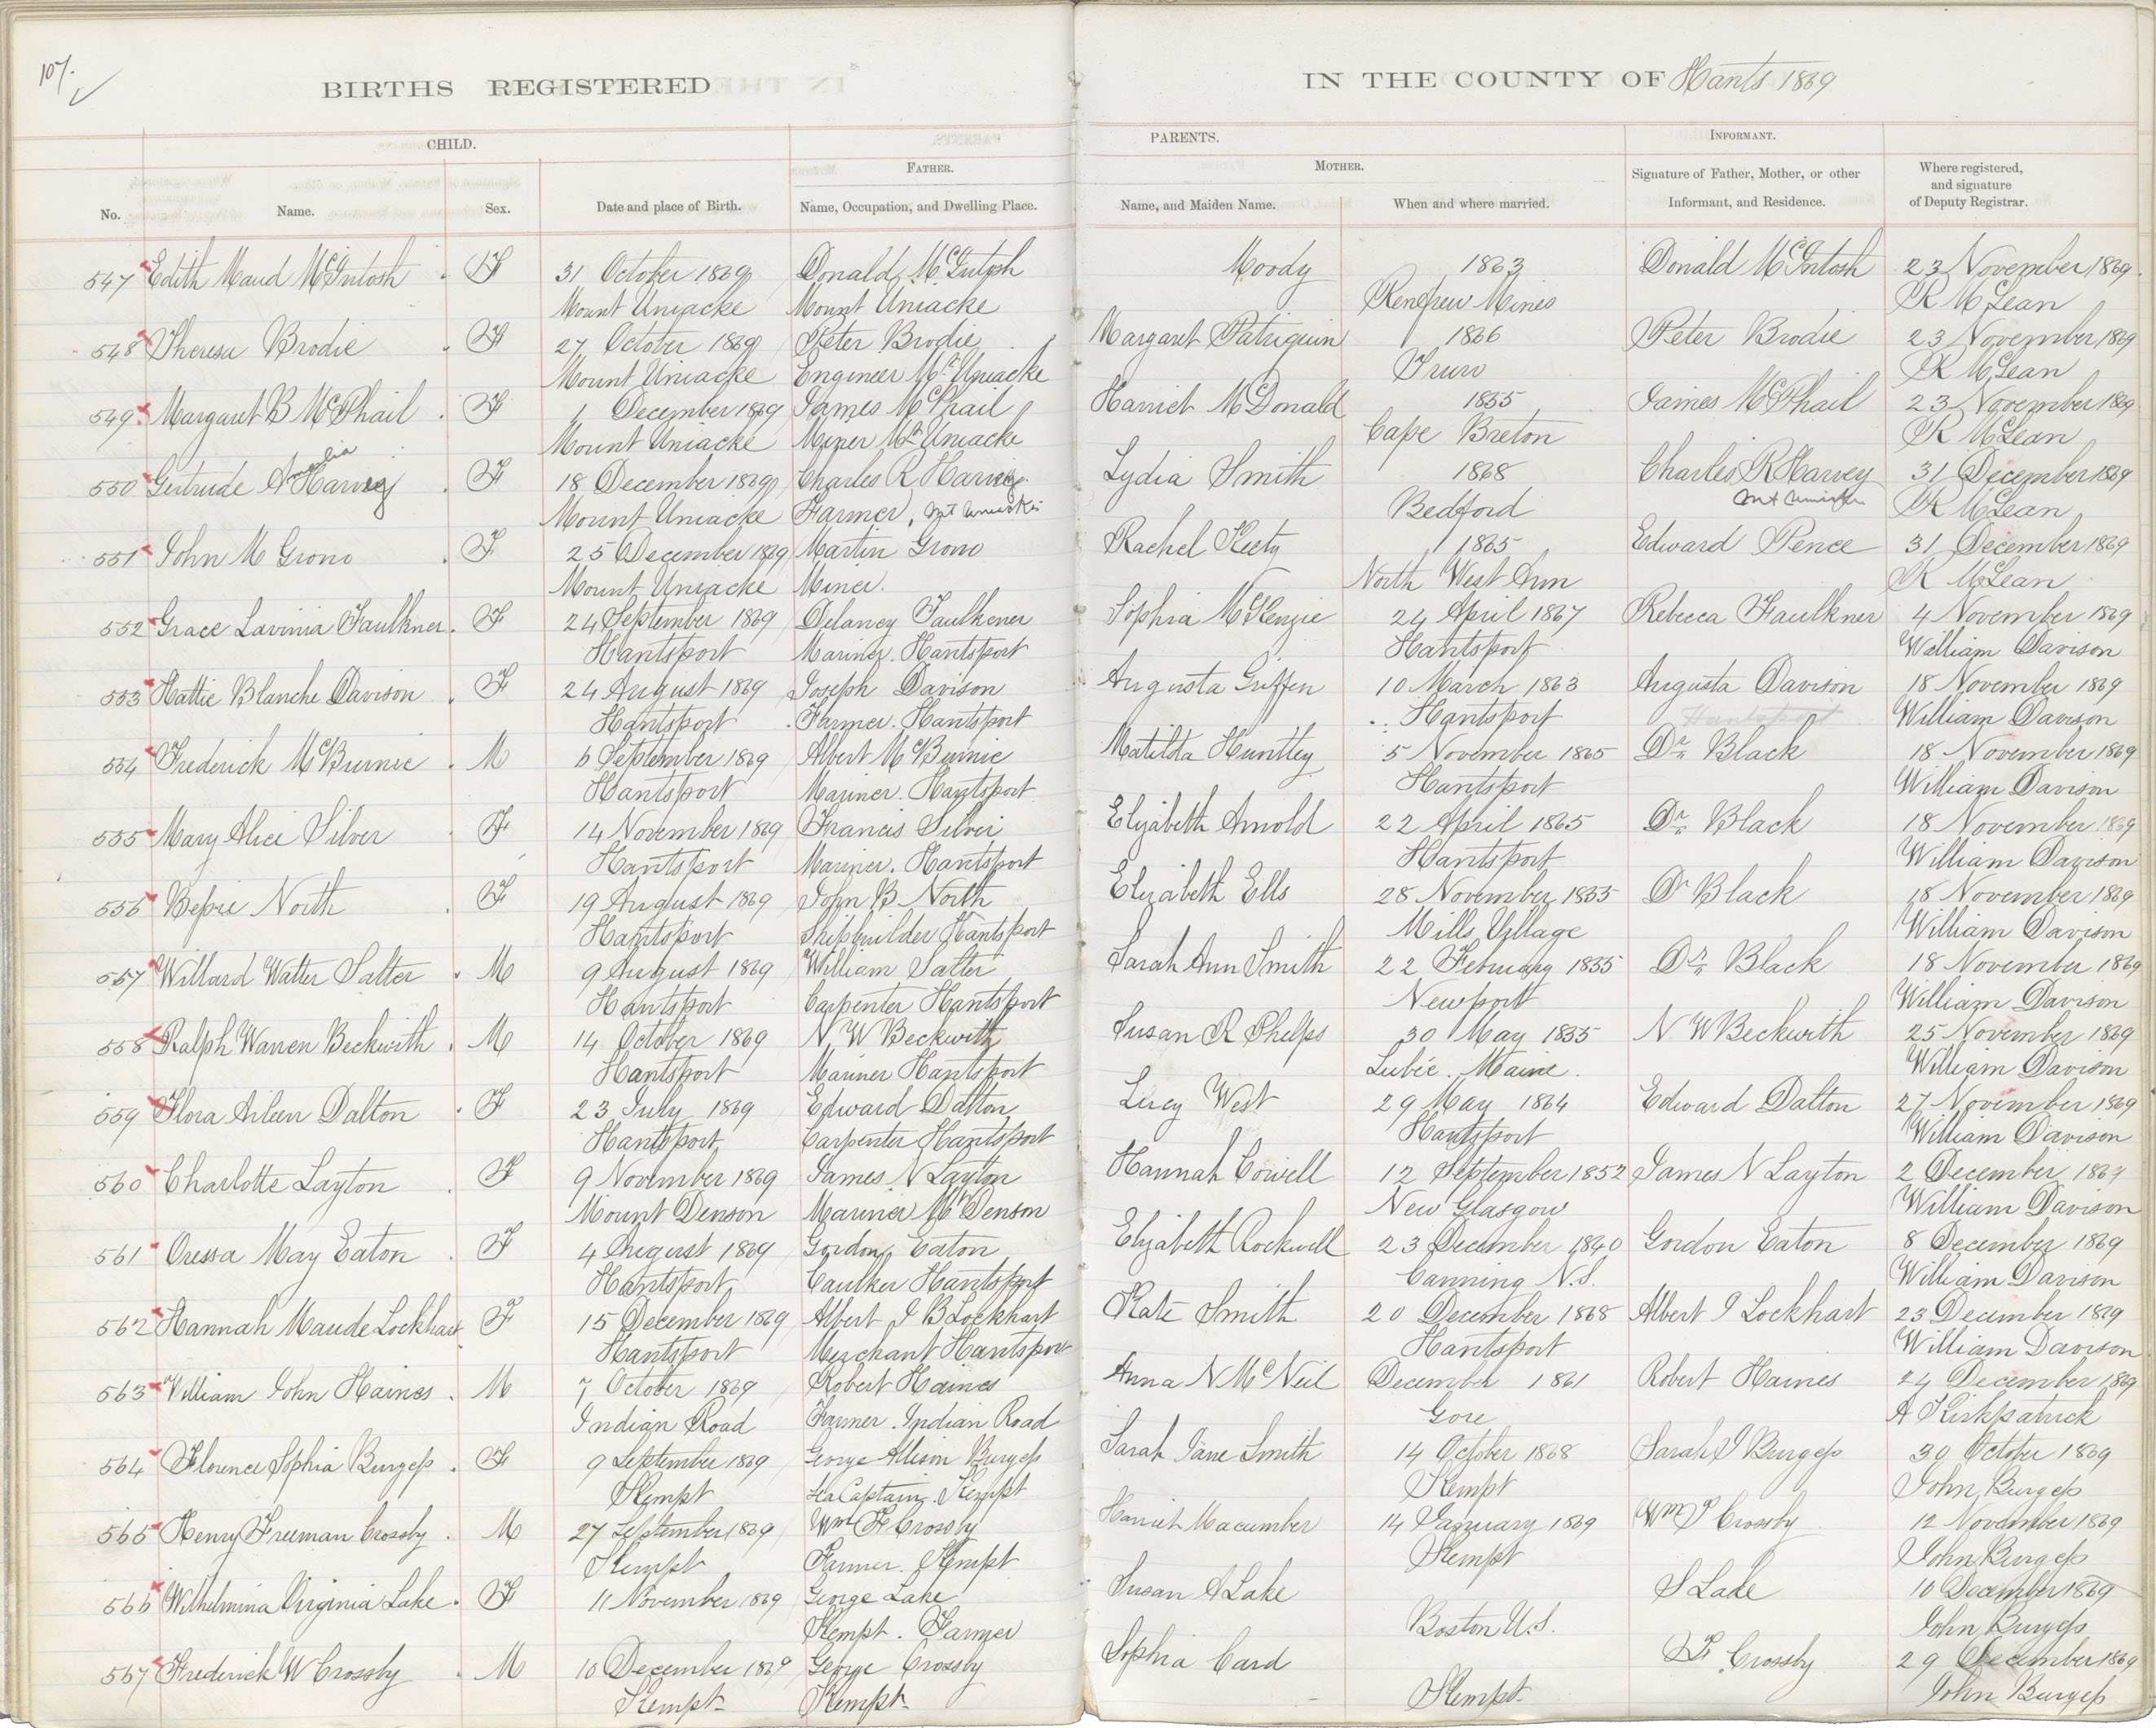 107.
BIRTHS REGISTERED
IN THE COUNTY OF Hants 1869
CHILD.
PARENTS.
INFORMANT.
FATHER.
MOTHER.
Signature of Father, Mother, or other
Informant, and Residence.
Where registered,
and signature
of Deputy Registrar.
No. Name. Sex. Date and place of Birth. Name, Occupation, and Dwelling Place. Name, and Maiden Name. When and where married.
547 Edith Maud McIntosh F 31 October 1869 Donald McIntosh Moody 1863 Donald McIntosh 23 November 1869
Mount Uniacke Mount Uniacke Renfrew Mines R McLean
548 Theresa Brodie F 27 October 1869 Peter Brodie Margaret Patriquin 1866 Peter Brodie 23 November 1869
Mount Uniacke Engineer Mt Uniacke Truro R McLean
549 Margaret B McPhail F 1 December 1869 James McPhail Harriet McDonald 1855 James McPhail 23 November 1869
Mount Uniacke Miner Mt Uniacke Cape Breton R McLean
Amelia
550 Gertrude A Harvey F 18 December 1869 Charles R Harvey Lydia Smith 1868 Charles R Harvey 31 December 1869
Mount Uniacke Farmer, Mt Uniacke Bedford Mt Uniacke R McLean
551 John M Grono F 25 December 1869 Martin Grono Rachel 1865 Edward Pence 31 December 1869
Mount Uniacke Miner. North West Arm R McLean
552 Grace Lavinia Faulkner F 24 September 1869 Delancy Faulkener Sophia McKenzie 24 April 1867 Rebecca Faulkner 4 November 1869
Hantsport Mariner. Hantsport Hantsport William Davison
553 Hattie Blanche Davison F 24 August 1869 Joseph Davison Augusta Griffen 10 March 1863 Augusta Davison 18 November 1869
Hantsport Farmer. Hantsport Hantsport Hantsport William Davison
554 Frederick McBurnie M 6 September 1869 Albert McBurnie Matilda Huntley 5 November 1865 Dr Black 18 November 1869
Hantsport Mariner. Hantsport Hantsport William Davison
555 Mary Alice Silver F 14 November 1869 Francis Silver Elizabeth Arnold 22 April 1865 Dr Black 18 November 1869
Hantsport Mariner. Hantsport Hantsport William Davison
556 Bessie North F 19 August 1869 John B North Elizabeth Ells 28 November 1855 Dr Black 18 November 1869
Hantsport Shipbuilder Hantsport Mills Village William Davison
557 Willard Walter Salter M 9 August 1869 William Salter Sarah Ann Smith 22 February 1855 Dr Black 18 November 1869
Hantsport Carpenter Hantsport Newport William Davison
558 Ralph Warren Beckwith M 14 October 1869 N W Beckwith Susan R Phelps 30 May 1855 N W Beckwith 25 November 1869
Hantsport Mariner Hantsport Lubec. Maine. William Davison
559 Flora Aileen Dalton F 23 July 1869 Edward Dalton Lucy West 29 May 1864 Edward Dalton 27 November 1869
Hantsport Carpenter Hantsport Hantsport William Davison
560 Charlotte Layton F 9 November 1869 James N Layton Hannah Cowell 12 September 1852 James N Layton 2 December 1869
Mount Denson Mariner Mt Denson New Glasgow William Davison
561 Oressa May Eaton F 4 August 1869 Gordon Eaton Elizabeth Rockwell 23 December 1840 Gordon Eaton 8 December 1869
Hantsport Caulker Hantsport Canning N.S. William Davison
562 Hannah Maude Lockhart F 15 December 1869 Albert J B Lockhart Kate Smith 20 December 1868 Albert J Lockhart 23 December 1869
Hantsport Merchant Hantsport Hantsport William Davison
563 William John Haines M 7 October 1869 Robert Haines Anna N McNeil December 1861 Robert Haines 24 December 1869
Indian Road Farmer. Indian Road Gore A Kirkpatrick
564 Florence Sophia Burgess F 9 September 1869 George Allison Burgess Sarah Jane Smith 14 October 1868 Sarah J Burgess 30 October 1869
Kempt Sea Captain. Kempt Kempt John Burgess
565 Henry Freeman Crossby M 27 September 1869 Wm H Crossby Harriet Macumber 14 January 1869 Wm Crossby 12 November 1869
Kempt Farmer. Kempt Kempt John Burgess
566 Wilhelmina Virginia Lake F 11 November 1869 George Lake Susan A Lake S Lake 10 December 1869
Kempt. Farmer Boston U.S. John Burgess
567 Frederick W Crossby M 10 December 1869 George Crossby Sophia Card Crossby 29 December 1869
Kempt Kempt Kempt John Burgess